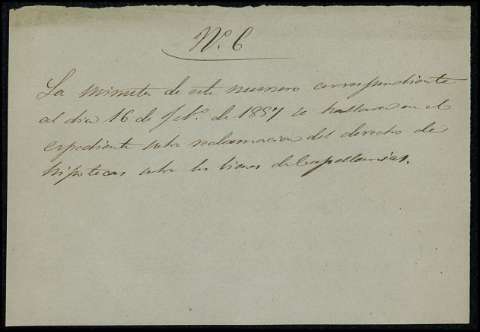 Nº. 6
La minuta de este numero correspondiente
al dia 16 de feb.º de 1857 se hallara en el
expediente sobre reclamacion del derecho de
hipotecas sobre los bienes de Capellanias.